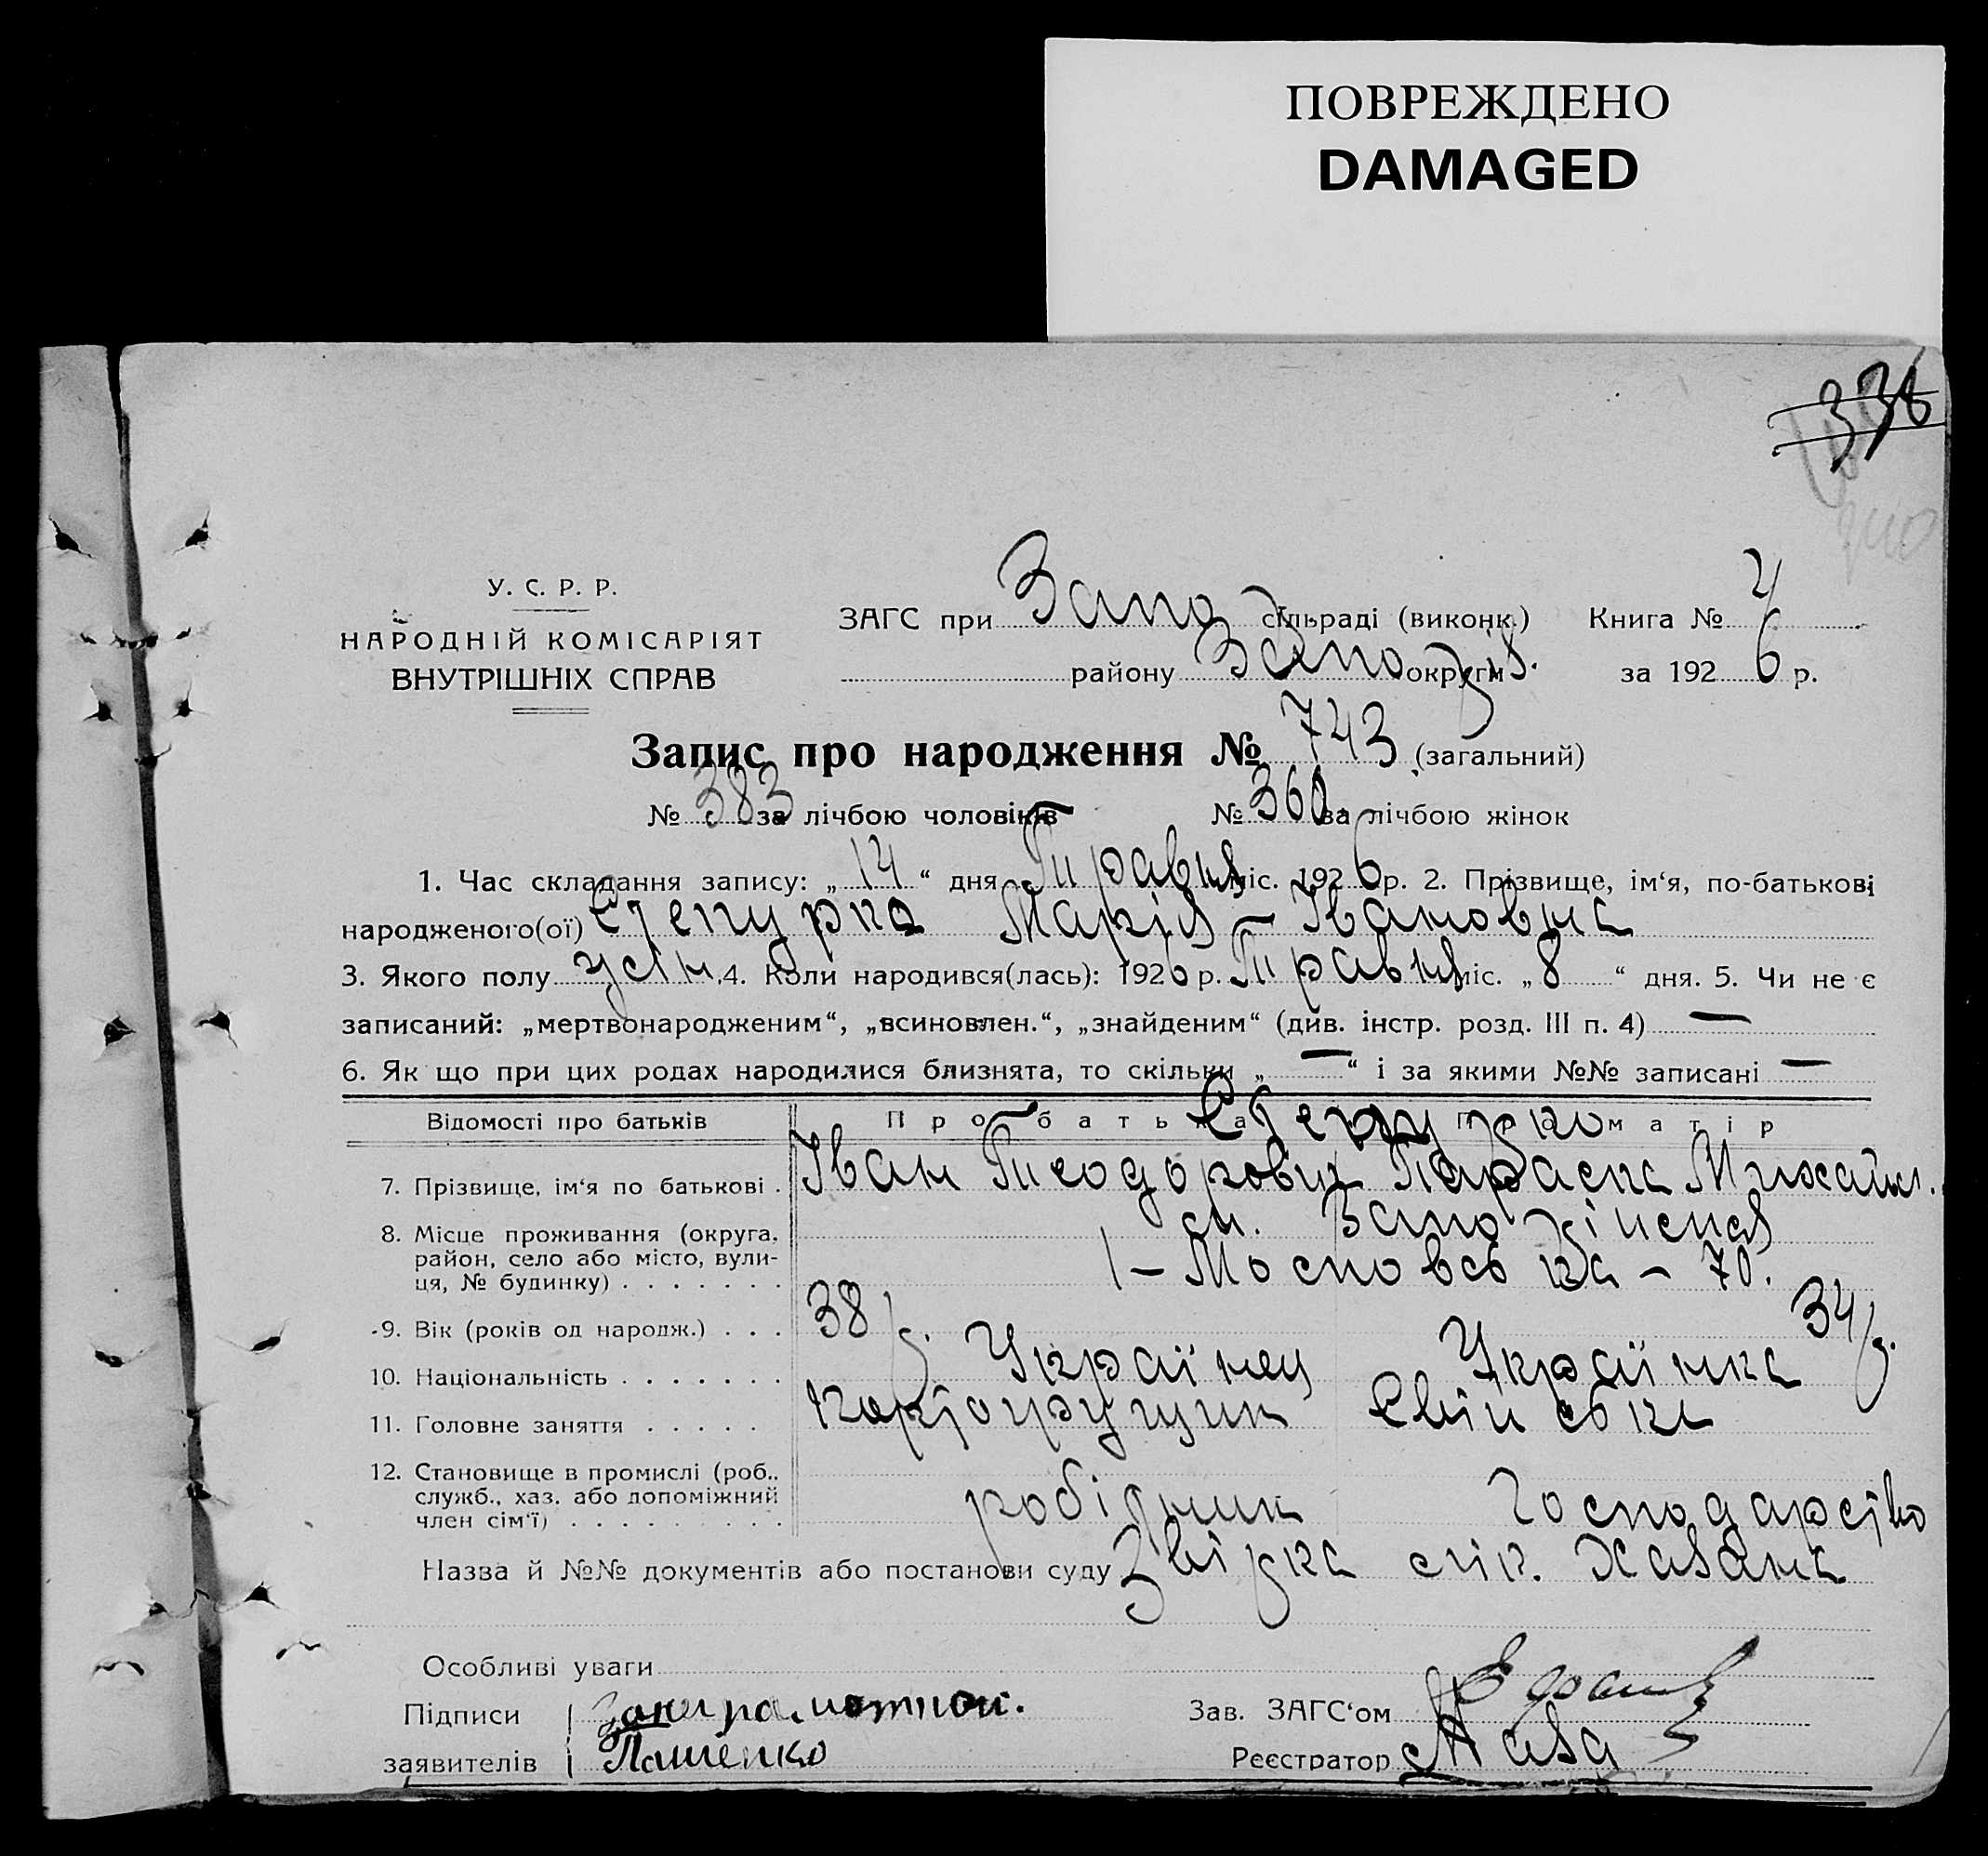 ПОВРЕЖДЕНО
DAMAGED
338
У. С. Р. Р.
НАРОДНІЙ КОМІСАРІЯТ
ВНУТРІШНІХ СПРАВ
ЗАГС при Запо сільраді (виконк.) Книга № 4
району Запо округи за 1926 р.
Запис про народження № 743 (загальний)
№ 383 за лічбою чоловіків № 360 за лічбою жінок
1. Час складання запису: „14“ дня Травня міс. 1926 р. 2. Прізвище, ім‘я, по-батькові
народженого(ої) Степурко Марія Івановна
3. Якого полу жін. 4. Коли народився(лась): 1926 р. Травня міс. „8“ дня. 5. Чи не є
записаний: „мертвонародженим“, „всиновлен.“, „знайденим“ (див. інстр. розд. III п. 4) —
6. Як що при цих родах народилися близнята, то скільки „—“ і за якими №№ записані —
Відомості про батьків Про батька Про матір
Степурко
7. Прізвище, ім‘я по батькові . Іван Теодорович Параска Михайл.
8. Місце проживання (округа, район, село або місто, вули-
ця, № будинку) . . . . . . . 1 – Московська – 70.
9. Вік (років од народж.) . . . 38 р. 34 р.
10. Національність . . . . . . . Українец Українка
11. Головне заняття . . . . .
12. Становище в промислі (роб.,
служб., хаз. або допоміжний
член сім‘ї) . . . . . . . . . робітник Господарство
Назва й №№ документів або постанови суду
Особливі уваги
Підписи
заявителів Пашенко
Зав. ЗАГС‘ом
Реєстратор